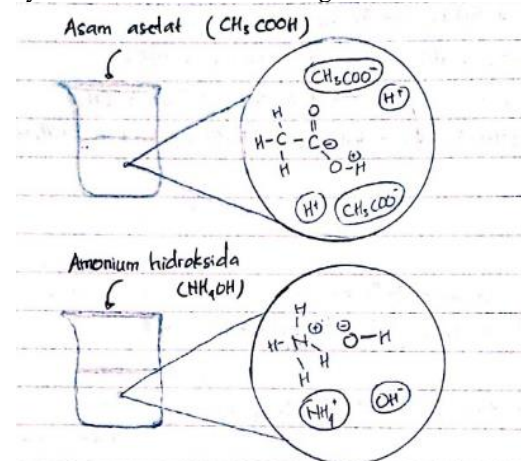 Asam asetat (CH₃COOH)
CH₃COO⁻
H⁺
H O
H-C-C⊖ ⊕
H O-H
H⁺ CH₃COO⁻
Amonium hidroksida
(NH₄OH)
H
H-N⊕ ⊖O-H
H
H
NH₄⁺ OH⁻